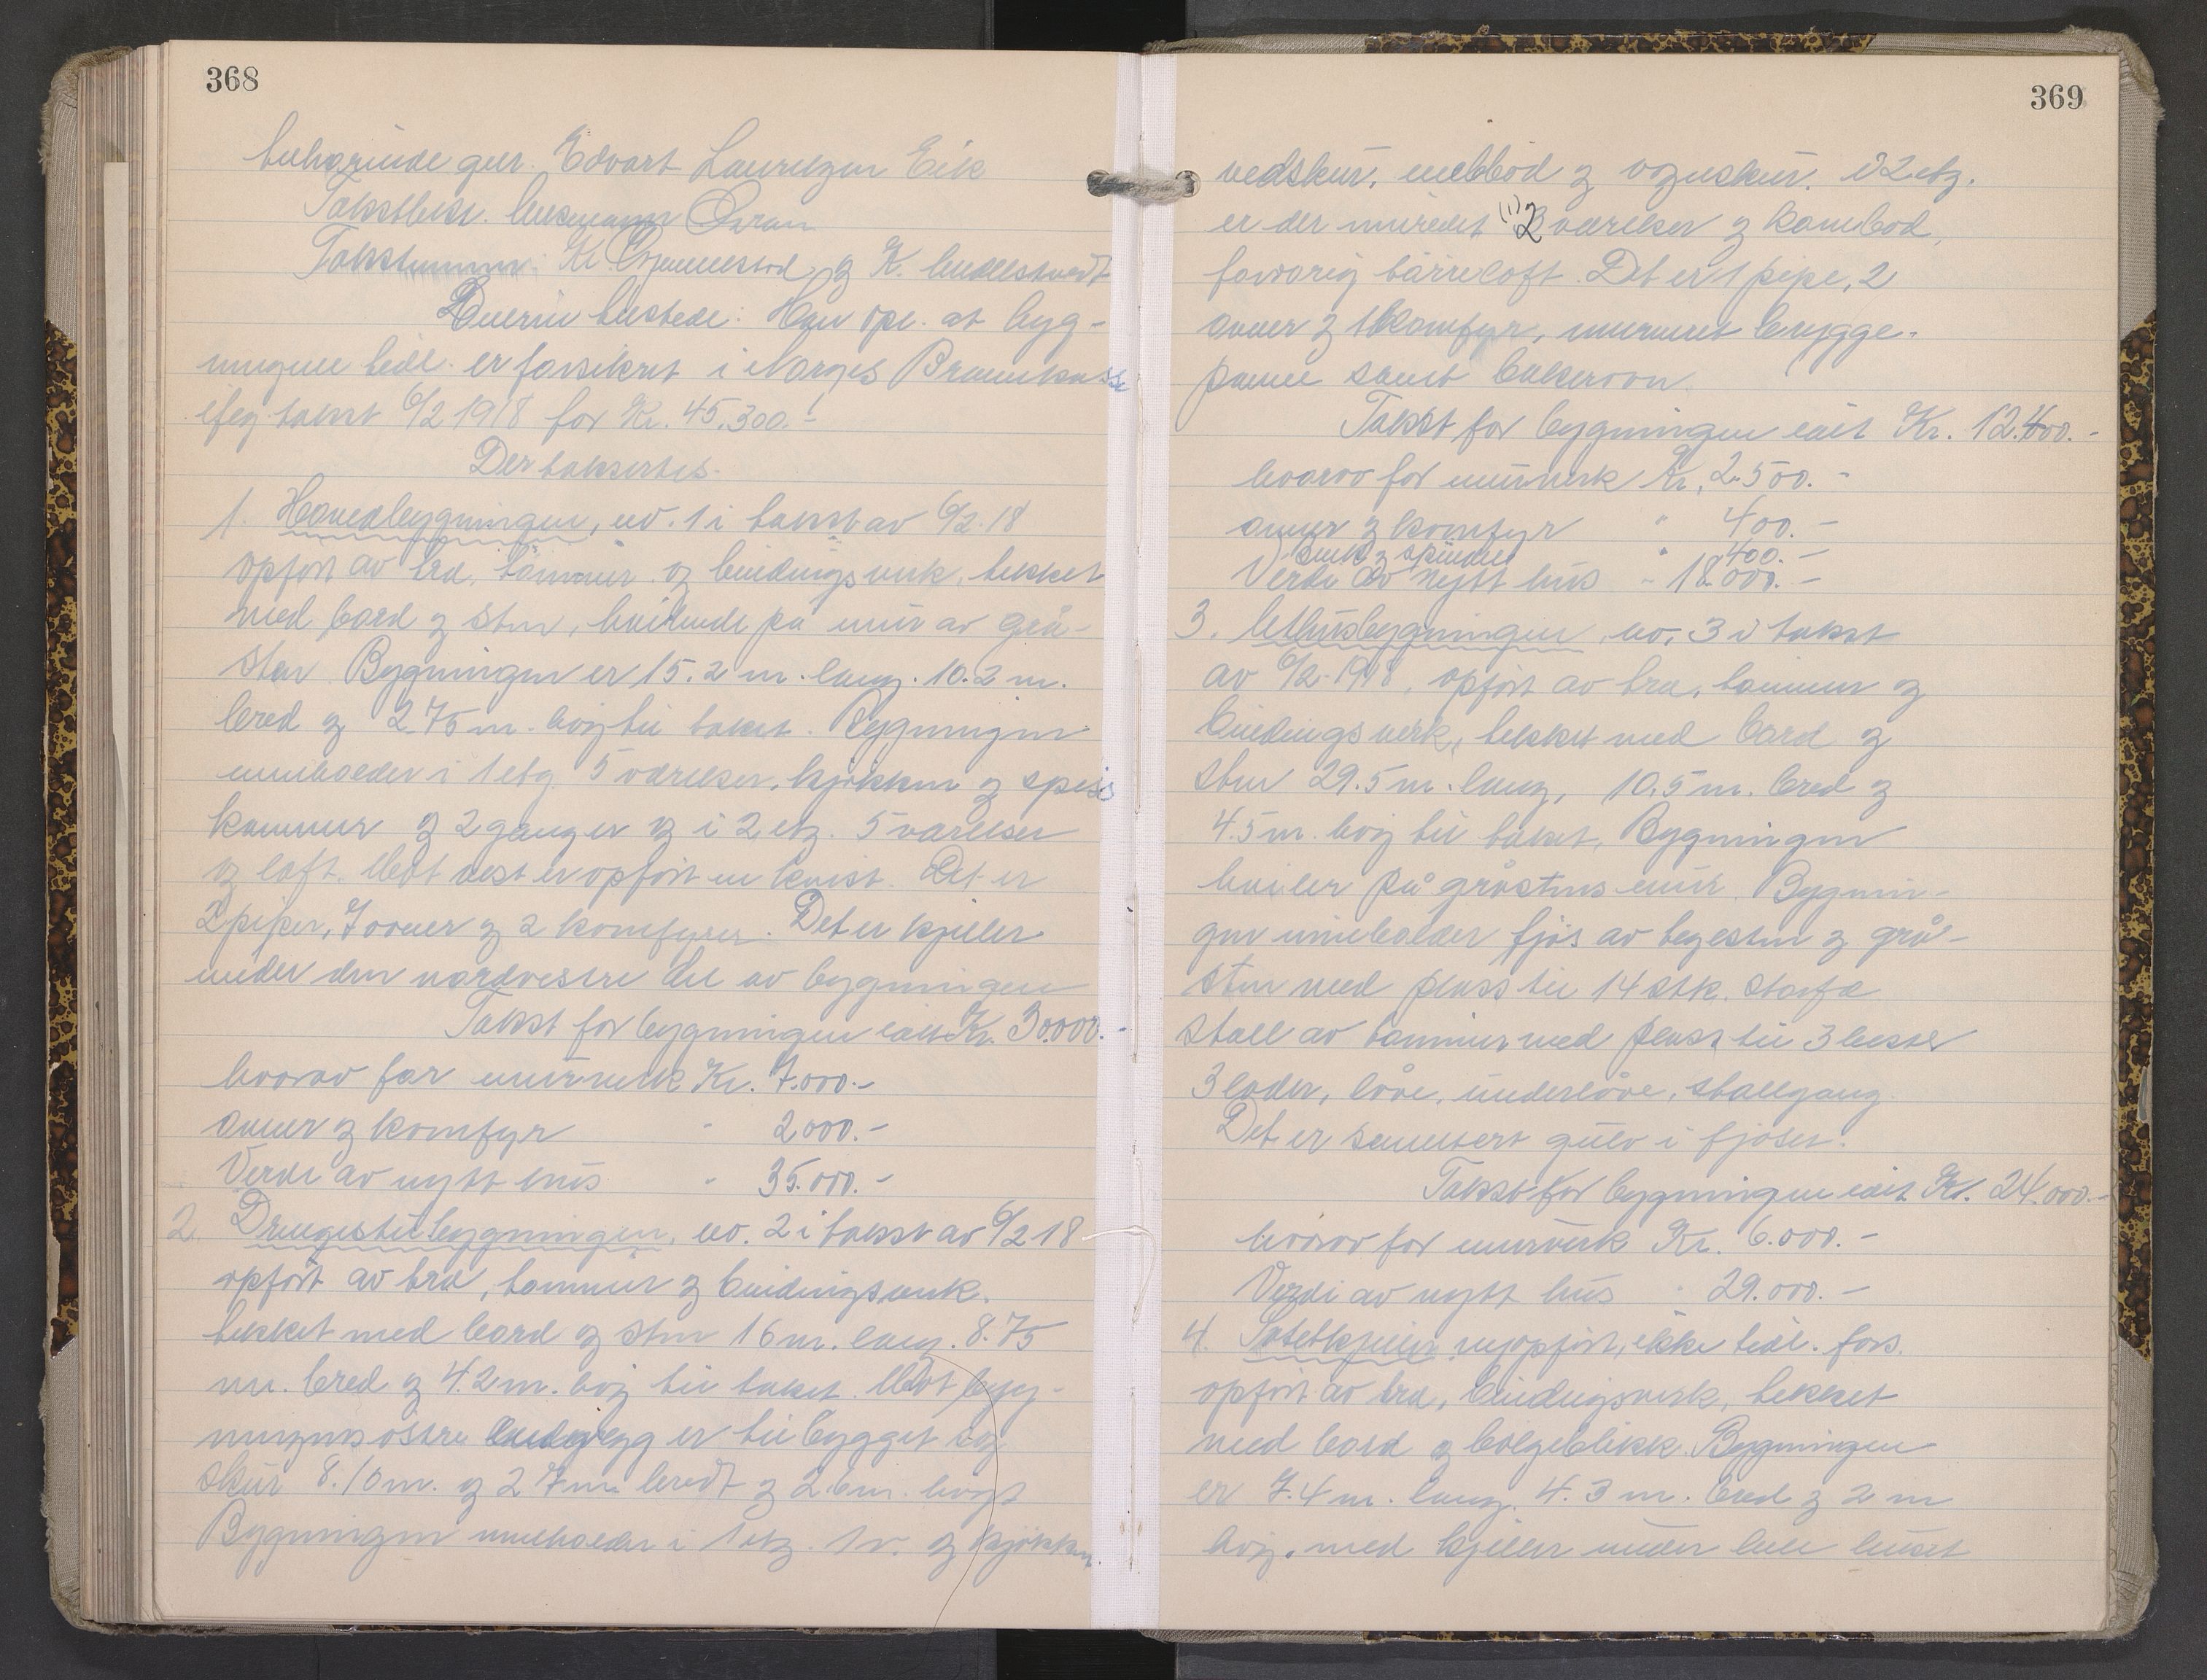 368
tilhørende gbr. Edvart Lauritzen Eik
Takstbest. lensmann
Takstmenn: Kr. og K.
Eieren tilstede: Han opl. at byg-
ningene tidl. er forsikret i Norges Brannkasse
ifølg takst 6/2 1918 for Kr. 45.300.-
Der takseres.
1. Hovedbygningen, no. 1 i takst av 6/2.18
opført av tre, tømmer og bindingsverk, tekket
med bord og sten, hvilende på mur av grå-
sten. Bygningen er 15.2 m. lang. 10.2 m.
bred og 2.75 m. høi til taket. Bygningen
inneholder i 1 etg. 5 værelser, kjøkken og spis
kammer og 2 ganger og i 2 etg. 5 værelser
og loft. Mot vest er opført en kvist. Det er
2 piper, 7 ovner og 2 komfyrer. Det er kjeller
under den nordvestre del av bygningen
Takst for bygningen ialt Kr. 30.000.-
hvorav for murverk Kr. 7.000.-
ovner og komfyr " 2000.-
Verdi av nytt hus " 35.000.-
2. Drengestubygningen, no. 2 i takst av 6/2 18
opført av tre, tømmer og bindingsverk.
tekket med bord og sten 16 m. lang. 8.75
m. bred og 4.2 m. høi til taket. Mot byg-
ningens østre endevegg er tilbygget
skur 8.10 m. og 2.7 m. bredt og 2.6 m. høit
Bygningen inneholder i 1 etg. 1 v. og kjøkken
369
vedskur, melbod og vognskur. I 2 etg.
er der innredet (1) 2 værelser og kornbod,
forøvrig tørreloft. Det er 1 pipe, 2
ovner og 1 komfyr, innmuret brygge-
panne samt bakerovn.
Takst for bygningen ialt Kr. 12.400.-
hvorav for murverk Kr. 2.500.-
ovner og komfyr " 400.-
" 400.-
Verdi av nytt hus " 18.000.-
3. Uthusbygningen, no. 3 i takst
av 6/2-1918, opført av tre, tømmer og
bindingsverk, tekket med bord og
sten 29.5 m. lang, 10.5 m. bred og
4.5 m. høi til taket. Bygningen
hviler på gråstensmur. Bygnin-
gen inneholder fjøs av teglsten og grå-
sten med plass til 14 stk. storfe
stall av tømmer med plass til 3 hester
3 lader, låve, underlåve, stallgang.
Det er sementert gulv i fjøset.
Takst for bygningen ialt Kr. 24.000.-
hvorav for murverk Kr. 6.000.-
Verdi av nytt hus " 29.000.-
4. Potetkjeller nyopført, ikke tidl. fors.
opført av tre, bindingsverk, tekket
med bord og bølgeblikk. Bygningen
er 7.4 m. lang. 4.3 m. bred og 2 m
høi, med kjeller under hele huset